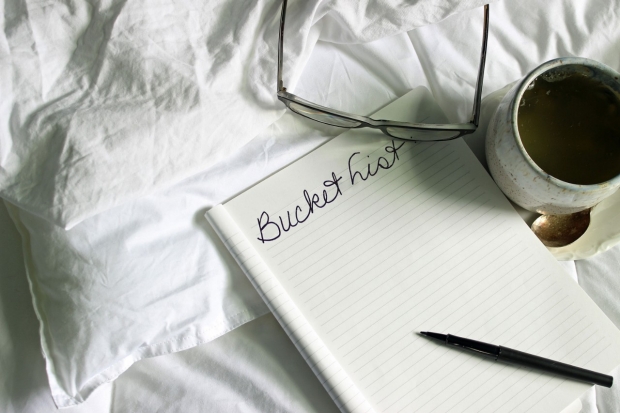 Bucket List